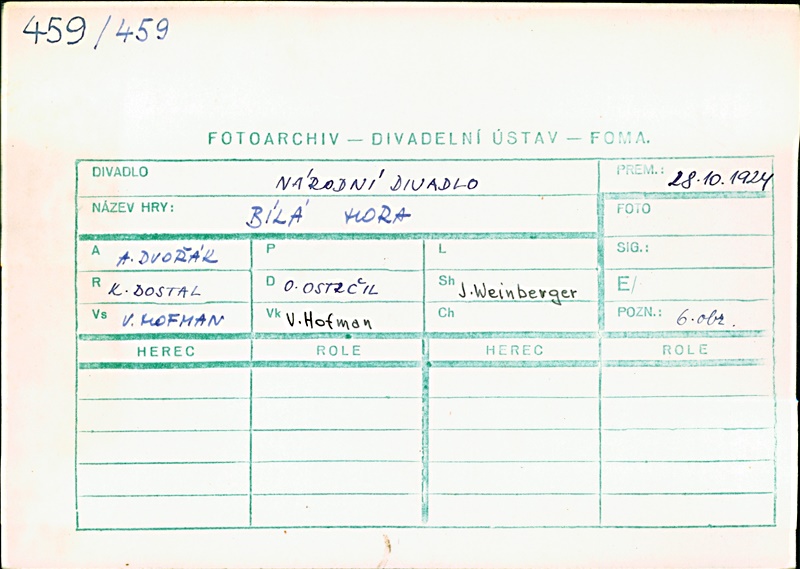 459/459
FOTOARCHIV — DIVADELNÍ ÚSTAV — FOMA.
DIVADLO NÁRODNÍ DIVADLO PREM.: 28.10.1924
NÁZEV HRY: BÍLÁ HORA FOTO
A A. DVOŘÁK P L SIG.:
R K. DOSTAL D O. OSTRČIL Sh J. Weinberger E/
Vs V. HOFMAN Vk V. Hofman Ch POZN.: 6. obr.
HEREC ROLE HEREC ROLE